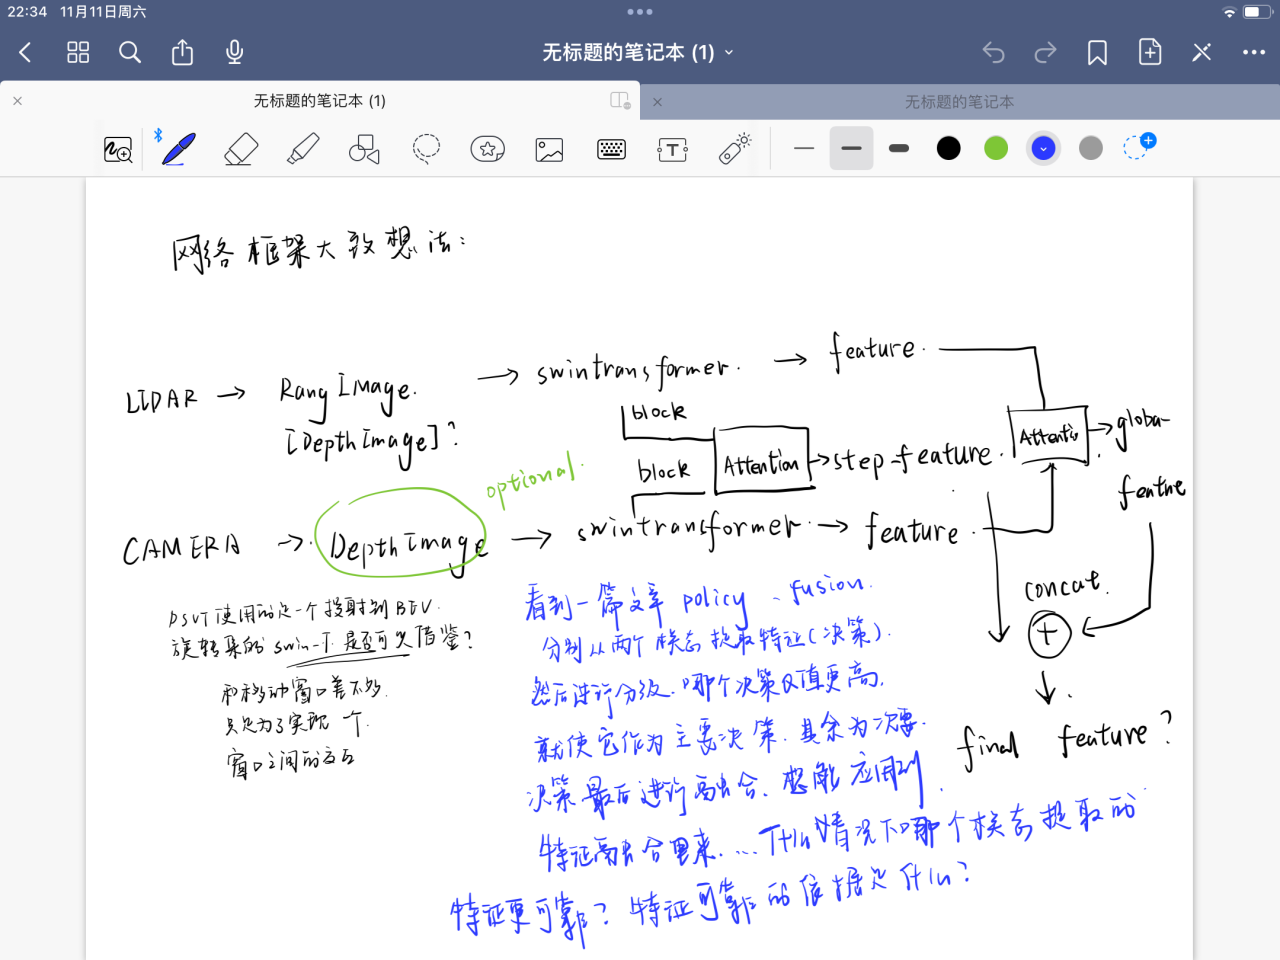 22:34 11月11日周六
无标题的笔记本 (1)
无标题的笔记本 (1)
无标题的笔记本
网络框架大致想法:
LIDAR → RangImage. → swintransformer. → feature.
[DepthImage]?
block
block
Attention → step-feature.
Attentio → globa-
feature
optional.
CAMERA → DepthImage → swintransformer. → feature.
concat.
+
final feature?
DSVT使用的是一个投射到BEV.
旋转集的swin-T.是否可以借鉴?
和移动窗口差不多.
只是为了实现一个.
窗口之间的交互
看到一篇文章 policy、fusion.
分别从两个模态提取特征(决策).
然后进行分级.哪个决策Q值更高.
就使它作为主要决策.其余为次要.
决策最后进行融合.想能应用到.
特征融合里来....什么情况下哪个模态提取的
特征更可靠?特征可靠的依据是什么?